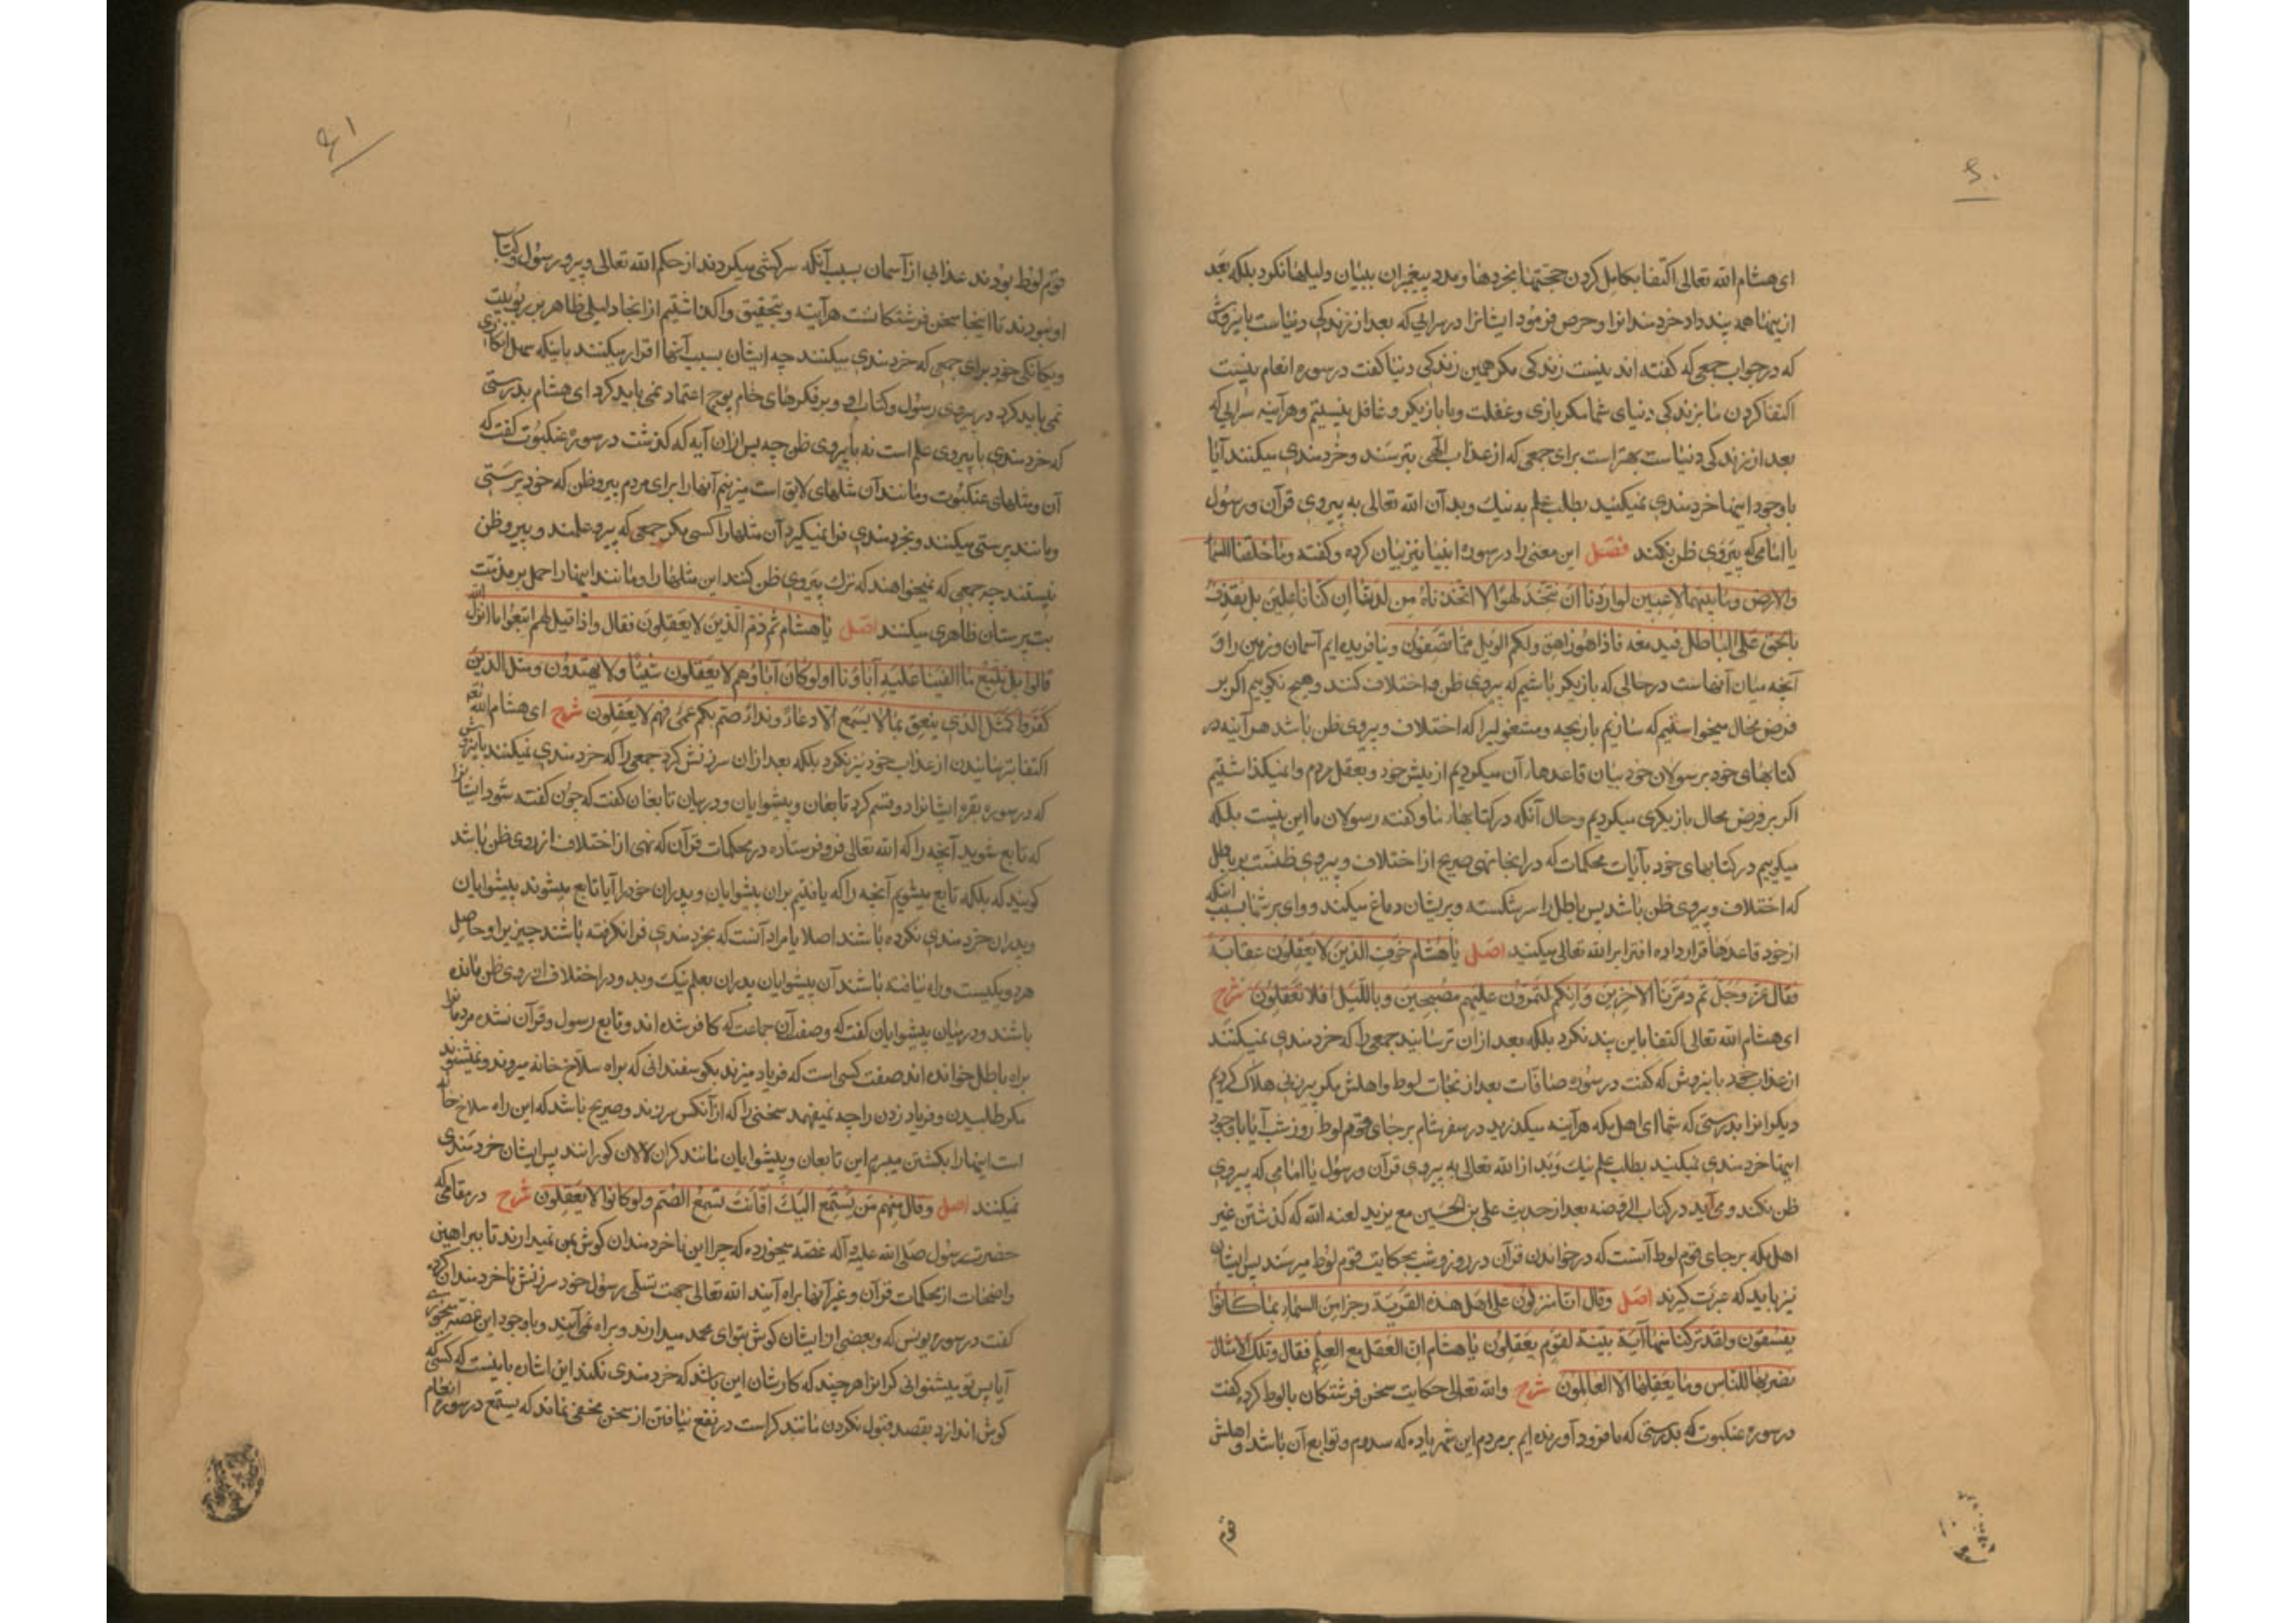 ۶۰
ای هشام الله تعالی اکتفا بکامل کردن حجتها بخردها و مدد پیغمبران ببیان و دلیلها نکرد بلکه بعد
از اینها همه پند داد خردمندانرا و حرص فرمود ایشانرا در سرایی که بعد از زندکی دنیاست باینروش
که در جواب جمعی که کفته اند نیست زندکی مکر همین زندکی دنیا کفت در سوره انعام نیست
اکتفا کردن ما بزندکی دنیای شما مکر بازی و غفلت و ما بازیکر و غافل نیستیم و هرآینه سرایی که
بعد از زندکی دنیاست بهتر است برای جمعی که از عذاب الهی بترسند و خردمندی میکنند آیا
باوجود اینها خردمندی نمیکنید بطلب علم به نیک و بد آن الله تعالی به پیروی قرآن و رسول
یا امامی که پیروی ظن نکند فصل این معنی را در سوره انبیا نیز بیان کرده و کفته وما خلقنا السماء
والارض وما بینهما لاعبین لو اردنا ان نتخذ لهوا لا اتخذناه من لدنا ان کنا فاعلین بل نقذف
بالحق علی الباطل فیدمغه فاذا هو زاهق ولکم الویل مما تصفون و نیافریده ایم آسمان و زمین را و
آنچه میان آنهاست در حالی که بازیکر باشیم که پیروی ظن و اختلاف کنند و هیچ نکوییم اکر بر
فرض محال میخواستیم که سازیم بازیچه و مشغولیرا که اختلاف و پیروی ظن باشد هرآینه در
کتابهای خود بر رسولان خود بیان قاعدهاء آن میکردیم از پیش خود و بعقل مردم وا نمیکذاشتیم
اکر بر فرض محال بازیکری میکردیم و حال آنکه در کتابهاء ما و کفته رسولان ما این نیست بلکه
میکوییم در کتابهای خود بآیات محکمات که در اینجا نهی صریح از اختلاف و پیروی ظنست بر باطل
که اختلاف و پیروی ظن باشد پس باطل را سر شکسته و پریشان دماغ میکند و وای بر شما بسبب اینکه
از خود قاعدها قرار داده افترا بر الله تعالی میکنید اصل یا هشام خوف الذین لا یعقلون عقابه
فقال عز وجل ثم دمرنا الاخرین وانکم لتمرون علیهم مصبحین وباللیل افلا تعقلون شرح
ای هشام الله تعالی اکتفا باین پند نکرد بلکه بعد از ان ترسانید جمعی را که خردمندی نمیکنند
از عذاب خود باینروش که کفت در سوره صافات بعد از نجات لوط و اهلش مکر پیرزنی هلاک کردیم
دیکرانرا بدرستی که شما ای اهل مکه هرآینه میکذرید در سفر شام بر جای قوم لوط روز و شب آیا باوجود
اینها خردمندی نمیکنید بطلب علم نیک و بد از الله تعالی به پیروی قرآن و رسول یا امامی که پیروی
ظن نکند و می آید در کتاب الروضه بعد از حدیث علی بن الحسین مع یزید لعنه الله که کذشتن غیر
اهل مکه بر جای قوم لوط آنست که در خواندن قرآن در روز و شب بحکایت قوم لوط میرسند پس ایشان
نیز باید که عبرت کیرند اصل وقال انا منزلون علی اهل هذه القریة رجزا من السماء بما کانوا
یفسقون ولقد ترکنا منها آیة بینة لقوم یعقلون یا هشام ان العقل مع العلم فقال وتلک الامثال
نضربها للناس وما یعقلها الا العالمون شرح والله تعالی حکایت سخن فرشتکان بالوط کرده کفت
در سوره عنکبوت که بدرستی که ما فرود آورنده ایم بر مردم این شهر یا ده که سدوم و توابع آن باشد و اهلش
قوم
۶۱
قوم لوط بودند عذابی از آسمان بسبب آنکه سرکشی میکردند از حکم الله تعالی و پیرو رسول و کتاب
او نبودند تا اینجا سخن فرشتکانست هرآینه و بتحقیق واکذاشتیم از انجا دلیلی ظاهر بر ربوبیت
و یکانکی خود برای جمعی که خردمندی میکنند چه ایشان بسبب آنها اقرار میکنند باینکه سهل انکاری
نمی باید کرد در پیروی رسول و کتاب او و بر فکرهای خام پوچ اعتماد نمی باید کرد ای هشام بدرستی
که خردمندی با پیروی علم است نه با پیروی ظن چه پس از ان آیه که کذشت در سوره عنکبوت کفت که
آن مثلهای عنکبوت و مانند آن مثلهای لایق است میزنیم آنها را برای مردم پیرو ظن که خود پرستی
و مانند پرستی میکنند و بخردمندی فرا نمیکیرد آن مثلها را کسی مکر جمعی که پیرو علمند و پیرو ظن
نیستند چه جمعی که نمیخواهند که ترک پیروی ظن کنند این مثلها را و مانند اینها را حمل بر مذمت
بت پرستان ظاهری میکنند اصل یا هشام ثم ذم الذین لا یعقلون فقال واذا قیل لهم اتبعوا ما انزل الله
قالوا بل نتبع ما الفینا علیه آباؤنا اولو کان آباؤهم لا یعقلون شیئا ولا یهتدون ومثل الذین
کفروا کمثل الذی ینعق بما لا یسمع الا دعاء ونداء صم بکم عمی فهم لا یعقلون شرح ای هشام الله تعه
اکتفا بترسانیدن از عذاب خود نیز نکرد بلکه بعد از ان سرزنش کرد جمعی را که خردمندی نمیکنند باینروش
که در سوره بقره ایشانرا دو قسم کرد تابعان و پیشوایان و در بیان تابعان کفت که چون کفته شود ایشانرا
که تابع شوید آنچه را که الله تعالی فرو فرستاده در محکمات قرآن که نهی از اختلاف از روی ظن باشد
کویند که بلکه تابع میشویم آنچه را که یافتیم بران پیشوایان و پدران خود را آیا تابع میشوند پیشوایان
و پدران خردمندی نکرده باشند اصلا یا مراد آنست که بخردمندی فرا نکرفته باشند چیزیرا و حاصل
هر دو یکیست و راه نیافته باشند آن پیشوایان پدران بعلم نیک و بد و در اختلاف از روی ظن مانده
باشند و در بیان پیشوایان کفت که وصف آن جماعت که کافر شده اند و تابع رسول و قرآن نشده مردمانرا
براه باطل خوانده اند صفت کسی است که فریاد میزند بکوسفندانی که براه سلاخ خانه میروند و نمیشنوند
مکر طلبیدن و فریاد زدن را چه نمیفهمد سخنی را که از آنکس سر زند و صریح باشد که این راه سلاخ خانه
است اینها را بکشتن میبرم این تابعان و پیشوایان مانند کران لالان کورانند پس ایشان خردمندی
نمیکنند اصل وقال منهم من یستمع الیک افانت تسمع الصم ولو کانوا لا یعقلون شرح در مقامی که
حضرت رسول صلی الله علیه وآله غصه میخورده که چرا این ناخردمندان کوش بمن نمیدارند تا ببراهین
واضحات از محکمات قرآن و غیر آنها براه آیند الله تعالی جهت تسلی رسول خود سرزنش ناخردمندان کرده
کفت در سوره یونس که و بعضی از ایشان کوش بتو ای محمد میدارند و براه نمی آیند و باوجود این غصه میخوری
آیا پس تو میشنوانی کرانرا هرچند که کارشان این باشد که خردمندی نکنند این اشاره باینست که کسی که
کوش اندازد بقصد قبول نکردن مانند کر است در نفع نیافتن از سخن مخفی نماند که یستمع در سوره انعام